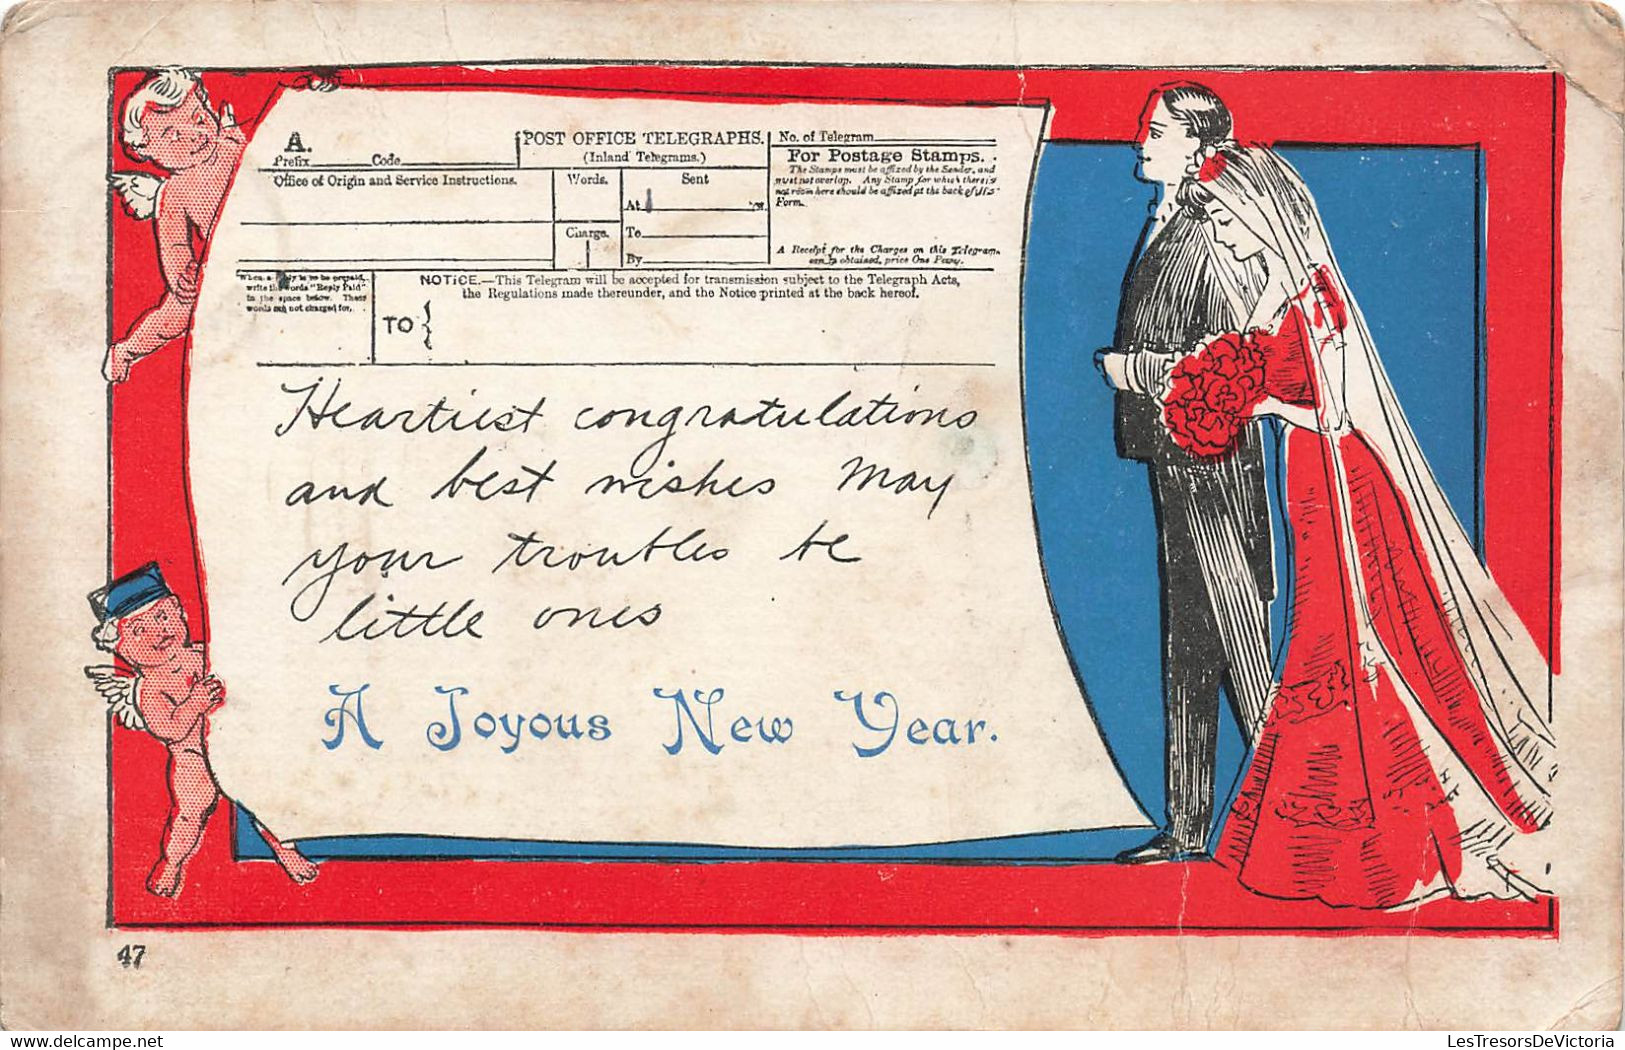 A.
Prefix Code
POST OFFICE TELEGRAPHS.
(Inland Telegrams.)
No. of Telegram
For Postage Stamps.
The Stamps must be affixed by the Sender, and
must not overlap. Any Stamp for which there is
not room here should be affixed at the back of this
Form.
A Receipt for the Charges on this Telegram
can be obtained, price One Penny.
Office of Origin and Service Instructions.
Words.
Sent
At
Charge.
To
By
When a Reply is to be prepaid,
write the words "Reply Paid"
in the space below. These
words are not charged for.
NOTICE.—This Telegram will be accepted for transmission subject to the Telegraph Acts,
the Regulations made thereunder, and the Notice printed at the back hereof.
TO
Heartiest congratulations
and best wishes May
your troubles be
little ones
A Joyous New Year.
47
delcampe.net
LesTresorsDeVictoria